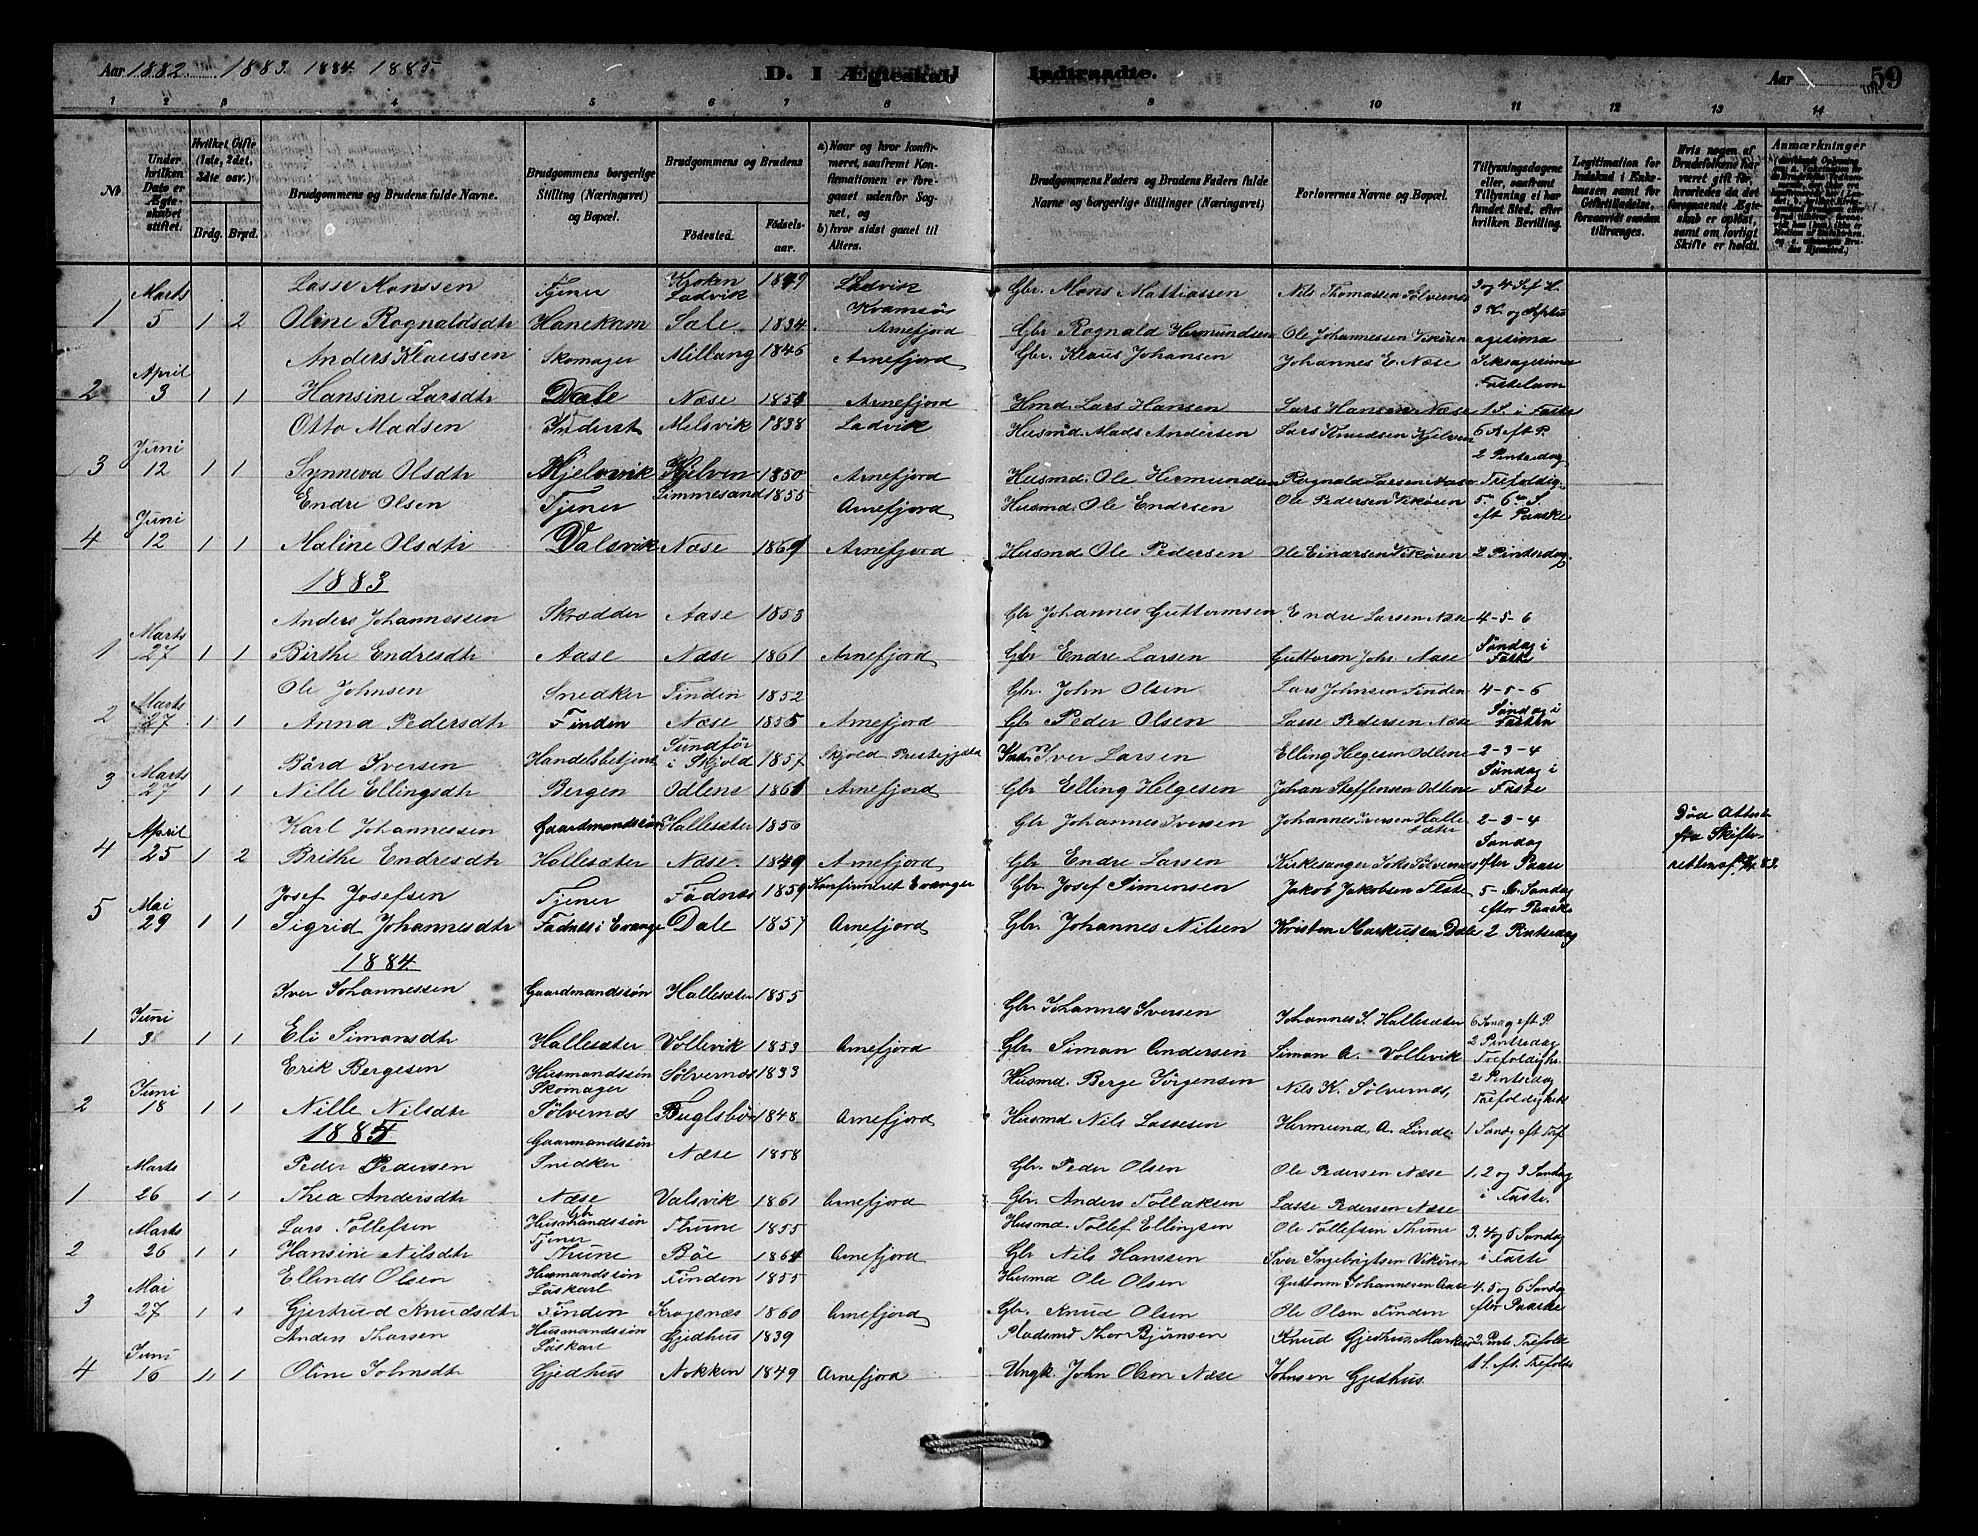 Aar 1882. 1883. 1884. 1885. D. I Ægteskab Indtraadte. Aar 59
1 2 3 4 5 6 7 8 9 10 11 12 13 14
Nr. Under hvilken Dato er Ægteskabet stiftet. Hvilket Gifte (1ste, 2det, 3die osv.) Brdg. Brud. Brudgommens og Brudens fulde Navne. Brudgommens borgerlige Stilling (Næringsvei) og Bopæl. Brudgommens og Brudens Fødested. Fødselsaar. a) Naar og hvor konfirmeret, saafremt Konfirmationen er foregaaet udenfor Sognet, og b) hvor sidst gaaet til Alters. Brudgommens Faders og Brudens Faders fulde Navne og borgerlige Stillinger (Næringsvei) Forlovernes Navne og Bopæl. Tillysningsdagene eller, saafremt Tillysning ei har fundet Sted, efter hvilken Bevilling. Legitimation for Indskud i Enkekassen samt for Giftetilladelse, forsaavidt saadan tiltrænges. Hvis nogen af Brudefolkene har været gift før, hvorledes da det foregaaende Ægteskab er opløst, samt om lovligt Skifte er holdt. Anmærkninger
Marts Lasse Monssen Tjener Kroken Ladvik 1849 Ladvik Gbr. Mons Mattiassen Nils Thomassen Sølvernes
1 5 1 2 Oline Rognaldsdtr Hanekam Sæle 1834 Kvamsøe Arnefjord Gbr Rognald Hermundsen Ole Johannessen Vikøren
Anders Klaussen Skomager Millang 1846 Arnefjord Gbr. Klaus Johansen Johannes E. Næse Seksagesima
2 April 3 1 1 Hansine Larsdtr Dale Næse 1855 Arnefjord Hmd. Lars Hansen Lars Hansen Næse 1 S. i Faste
Otto Madsen Inderst Melsvik 1838 Ladvik Husmd. Mads Andersen Lars Knudsen Kjelven 6 S. eft P.
3 Juni 12 1 1 Synneva Olsdtr Kjelsvik Kjelven 1850 Arnefjord Husmd. Ole Hermundsen Rognald Larsen Næse 2 Pintsedag Trefoldig.
Endre Olsen Tjener Simmesand 1855 Arnefjord Husmd. Ole Endresen Ole Pedersen Vikøren 5. 6te S. eft Paaske
4 Juni 12 1 1 Maline Olsdtr Dalsvik Næse 1861 Arnefjord Husmd Ole Pedersen Ole Einarsen Vikøren 2 Pintsedag
1883
Anders Johannessen Skrædder Aase 1853 Gbr Johannes Guttormsen Endre Larsen Næse 4-5-6
1 Marts 27 1 1 Birthe Endresdtr Aase Næse 1861 Arnefjord Gbr Endre Larsen Guttorm Joh. Aase Søndag i Faste
Ole Johnsen Snedker Finden 1852 Gbr. John Olsen Lars Johnsen Finden 4-5-6
2 Marts 27 1 1 Anna Pedersdtr Finden Næse 1855 Arnefjord Gbr Peder Olsen Lasse Pedersen Næse Søndag i Fasten
Bård Iversen Handelsbetjent Sundför i Skjold 1857 Skjold Prestegjeld Iver Larsen Elling Helgesen Odlene 2-3-4
3 Marts 27 1 1 Nille Ellingsdtr Bergen Odlene 1861 Arnefjord Gbr Elling Helgesen Johan Steffensen Odlene Søndag i Faste
Karl Johannessen Gaardmandssøn Hallesæter 1856 Gbr Johannes Iversen Johannes Iversen Hallesæter 2-3-4 Død Attest
4 April 25 1 2 Brithe Endresdtr Hallesæter Næse. 1849 Arnefjord Gbr Endre Larsen Kirkesanger Joks Sølvernes Søndag efter Paase fra Skifteretten af
Josef Josefsen Tjener Fadnæs 1859 Konfirmeret Evanger Gbr. Josef Simensen Jakob Jakobsen 5-6 Søndag efter Paaske
5 Mai 29 1 1 Sigrid Johannesdtr Fadnes i Evanger Dale 1857 Arnefjord Gbr. Johannes Nilsen Kristen Markussen Dale 2 Pintsedag
1884
Iver Johannessen Gaardmandssön Hallesæter 1855 Gbr. Johannes Iversen Johannes I. Hallesæter 6 Søndag eft P.
1 Juni 3 1 1 Eli Simonsdtr Hallesæter Vollevik 1853 Arnefjord Gbr. Siman Andersen Siman A. Vollevik 2 Pintsedag Trefoldigh.
Erik Bergesen Husmandssön Skomager Sölvernes 1833 Husmd. Berge Jörgensen Nils K. Sölvernes, 2 Pintsedag
2 Juni 18 1 1 Nille Nilsdtr Sölvernes Fuglsbø 1848 Arnefjord Husmd Nils Lassesen Hermund A. Linde. Trefoldighed 1 Sønd. eft Tref
1885
Peder Pedersen Gaarmandssön Snedker Næse 1858 Gbr. Peder Olsen Ole Pedersen Næse 1, 2 og 3 Søndag
1 Marts 26 1 1 Thea Andersdtr Næse Valsvik 1861 Arnefjord Gbr. Anders Tollaksen Lasse Pedersen Næse i Faste.
Lars Tollefsen Husmandssön Tjener Thune 1855 Husmd. Tollef Ellingsen Ole Tollefsen Thune 3. 4 og 5 Søndag
2 Marts 26 1 1 Hansine Nilsdtr Thune Böe 1864 Arnefjord Gbr Nils Hanssen Iver Ingebrigtsen Vikøren i Faste
Ellends Olsen Husmandssön Löskarl Finden 1855 Husmd Ole Olsen Guttorm Johannesen Aase 4. 5 og 6 Søndag
3 Mai 27 1 1 Gjertrud Knudsdtr Finden Krogenæs 1860 Arnefjord Gbr. Knud Olsen Ole Olsen Finden efter Paaske
Anders Thorsen Husmandssön Löskarl Gjedhus 1839 Pladsmd Thor Björnsen Knud Gjedhus,
4 Juni 16 1 1 Oline Johnsdtr Gjedhus Nokken 1849 Arnefjord Ungk. John Olsen Næse Johnsen Gjedhus. 1 S. eft. Trefold.